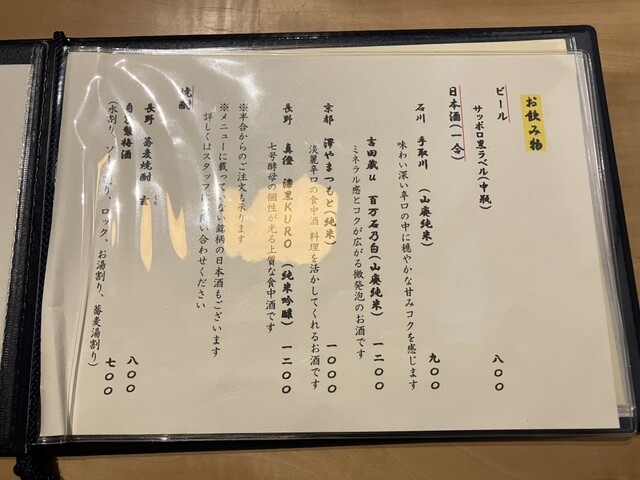 お飲み物
ビール
サッポロ黒ラベル(中瓶) 八〇〇
日本酒(一合)
石川 手取川 (山廃純米) 九〇〇
味わい深い辛口の中に穏やかな甘みコクを感じます
吉田蔵u 百万石乃白(山廃純米) 一二〇〇
ミネラル感とコクが広がる微発泡のお酒です
京都 澤やまつもと(純米) 一〇〇〇
淡麗辛口の食中酒 料理を活かしてくれるお酒です
長野 真澄 漆黒KURO (純米吟醸) 一二〇〇
七号酵母の個性が光る上質な食中酒です
※半合からのご注文も承ります
※メニューに載っていない銘柄の日本酒もございます
詳しくはスタッフにお問い合わせください
焼酎
長野 蕎麦焼酎 八〇〇
製梅酒 七〇〇
(水割り、ソーダ割り、ロック、お湯割り、蕎麦湯割り)